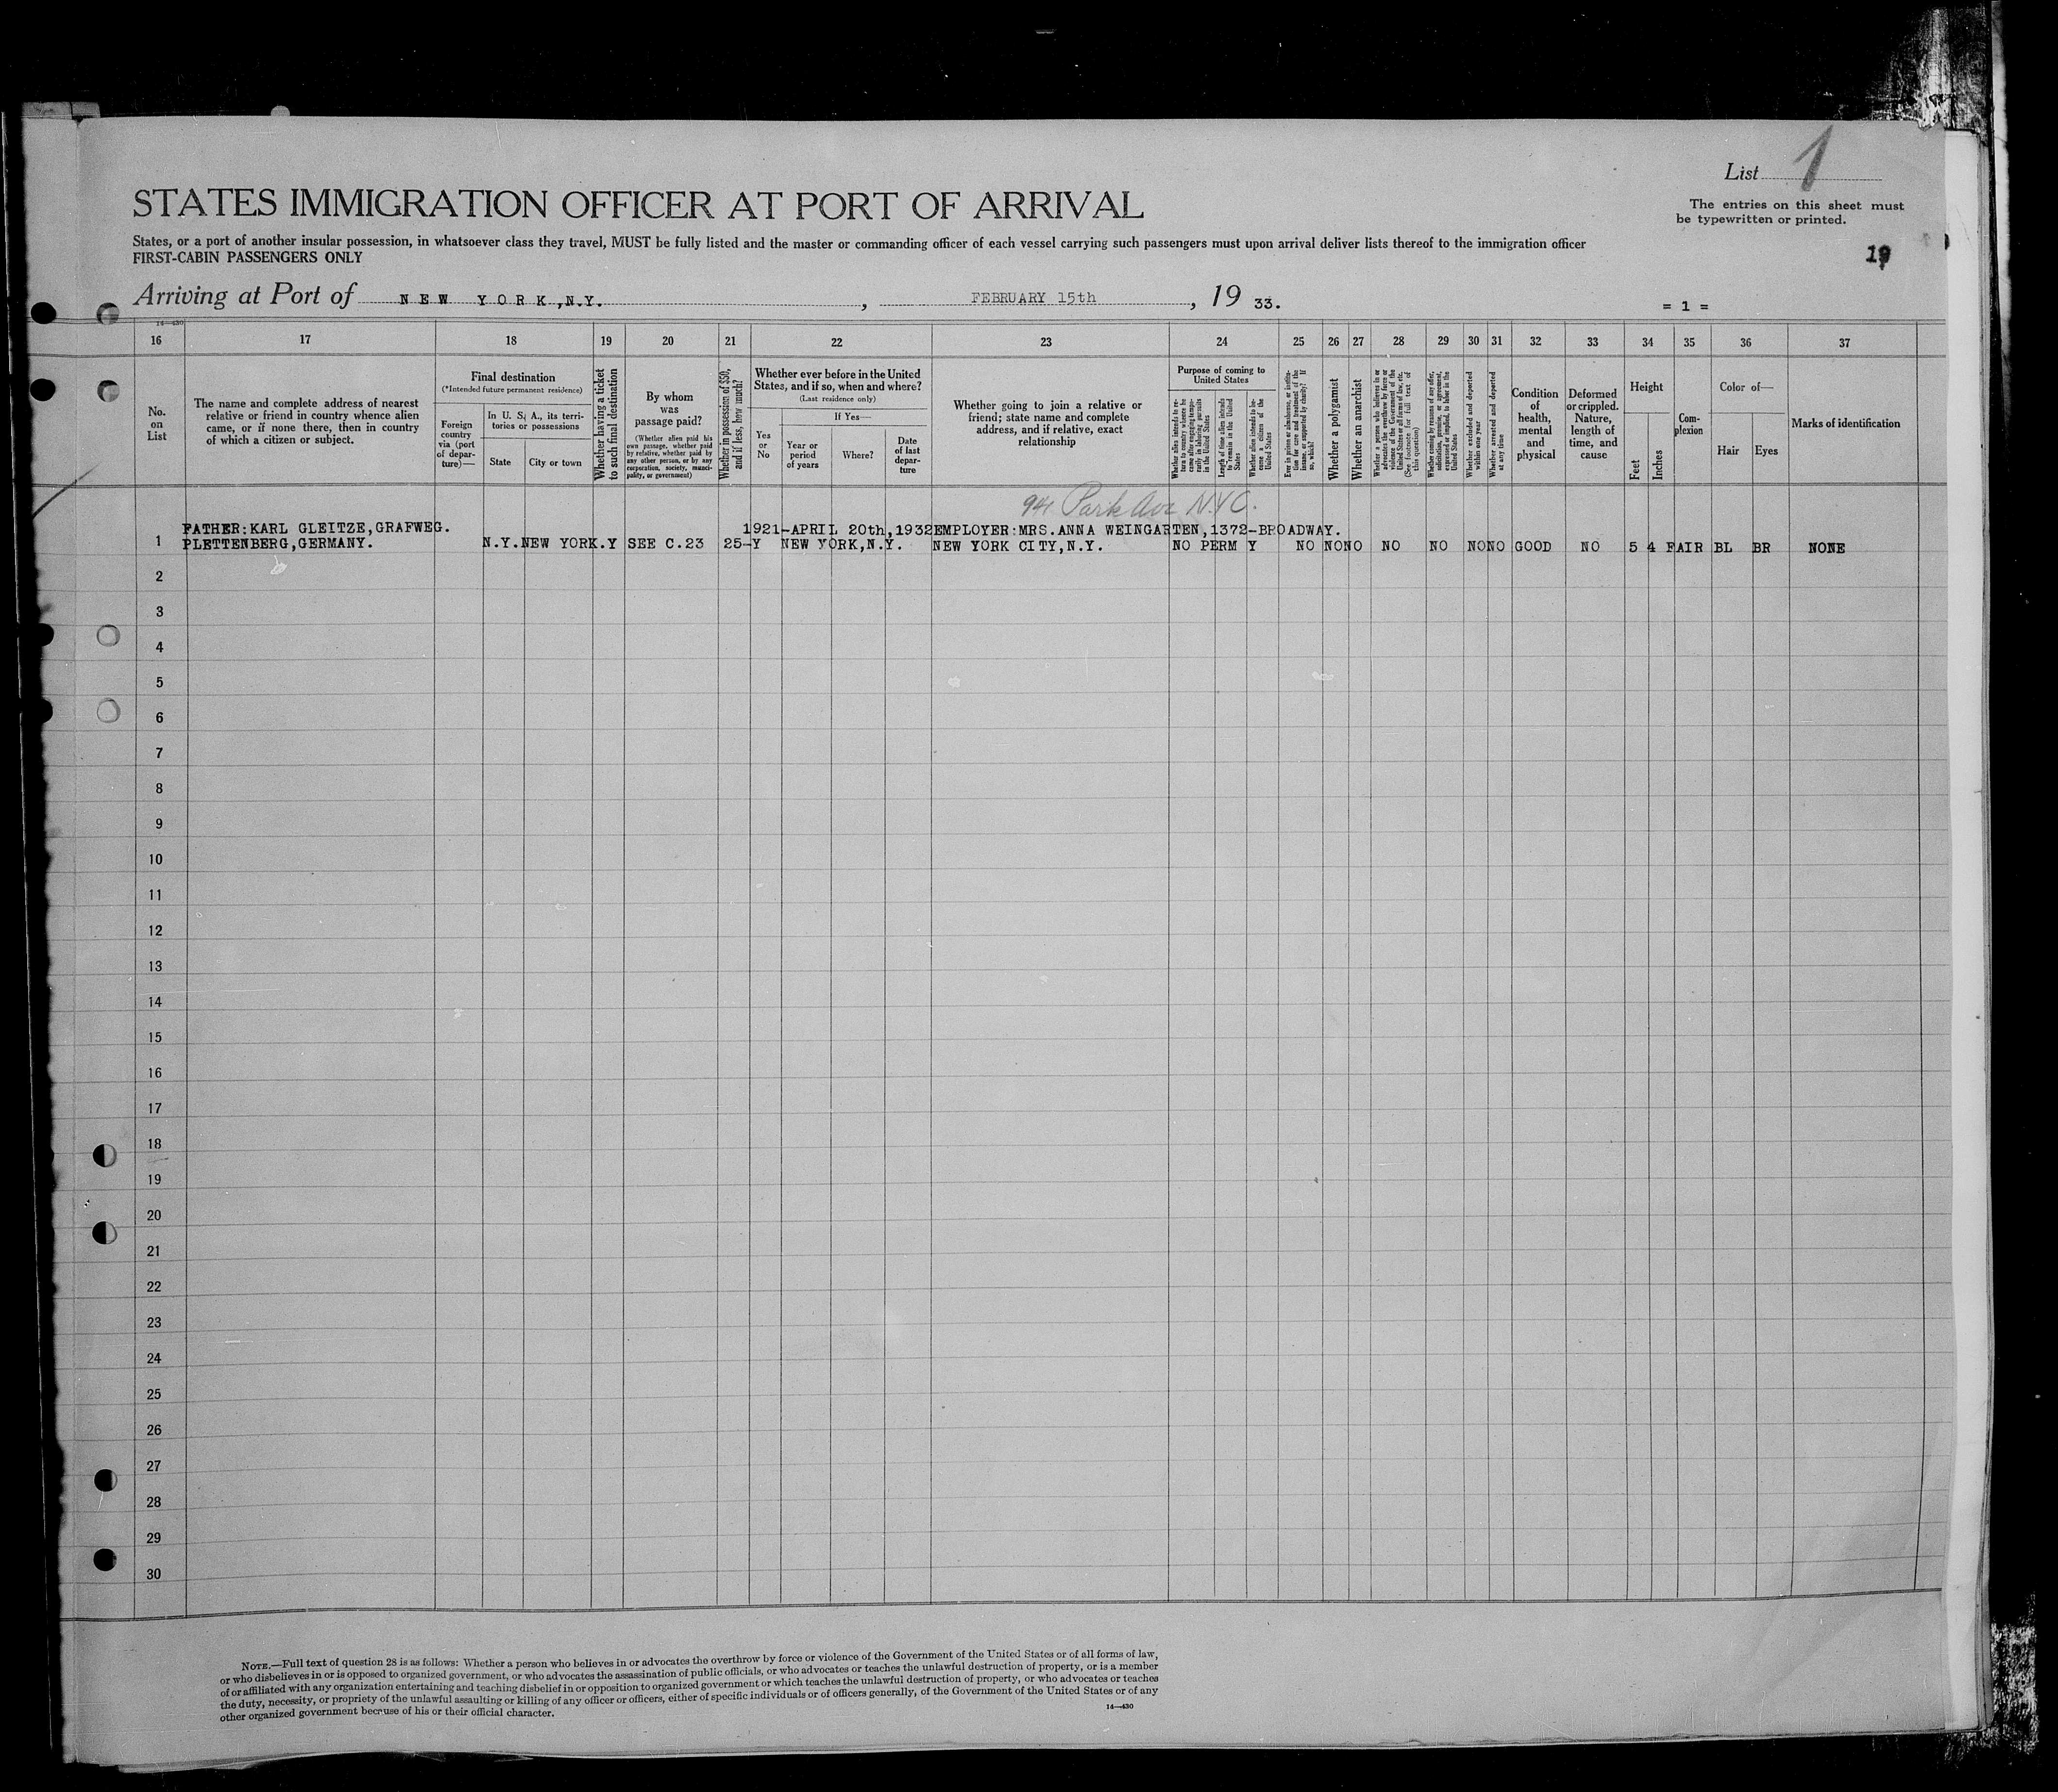 List 1
STATES IMMIGRATION OFFICER AT PORT OF ARRIVAL
The entries on this sheet must
be typewritten or printed.
States, or a port of another insular possession, in whatsoever class they travel, MUST be fully listed and the master or commanding officer of each vessel carrying such passengers must upon arrival deliver lists thereof to the immigration officer
FIRST-CABIN PASSENGERS ONLY
19
Arriving at Port of NEW YORK, N.Y. , FEBRUARY 15th , 19 33.
= 1 =
14—430
16 17 18 19 20 21 22 23 24 25 26 27 28 29 30 31 32 33 34 35 36 37
No.
on
List
The name and complete address of nearest
relative or friend in country whence alien
came, or if none there, then in country
of which a citizen or subject.
Final destination
(*Intended future permanent residence)
Foreign
country
via (port
of depar-
ture)—
In U. S. A., its terri-
tories or possessions
State
City or town
Whether having a ticket
to such final destination
By whom
was
passage paid?
(Whether alien paid his
own passage, whether paid
by relative, whether paid by
any other person, or by any
corporation, society, munici-
pality, or government)
Whether in possession of $50,
and if less, how much?
Whether ever before in the United
States, and if so, when and where?
(Last residence only)
Yes
or
No
If Yes—
Year or
period
of years
Where?
Date
of last
depar-
ture
Whether going to join a relative or
friend; state name and complete
address, and if relative, exact
relationship
Purpose of coming to
United States
Whether alien intends to re-
turn to country whence he
came after engaging tempo-
rarily in laboring pursuits
in the United States
Length of time alien intends
to remain in the United
States
Whether alien intends to be-
come a citizen of the
United States
Ever in prison or almshouse, or institu-
tion for care and treatment of the
insane, or supported by charity? If
so, which?
Whether a polygamist
Whether an anarchist
Whether a person who believes in or
advocates the overthrow by force or
violence of the Government of the
United States or all forms of law, etc.
(See footnote for full text of
this question)
Whether coming by reason of any offer,
solicitation, promise, or agreement,
expressed or implied, to labor in the
United States
Whether excluded and deported
within one year
Whether arrested and deported
at any time
Condition
of
health,
mental
and
physical
Deformed
or crippled.
Nature,
length of
time, and
cause
Height
Feet
Inches
Com-
plexion
Color of—
Hair
Eyes
Marks of identification
941 Park Ave N.Y.C.
FATHER:KARL GLEITZE,GRAFWEG. 1921-APRIL 20th,1932 EMPLOYER:MRS.ANNA WEINGARTEN,1372-BROADWAY.
1 PLETTENBERG,GERMANY. N.Y. NEW YORK. Y SEE C.23 25- Y NEW YORK,N.Y. NEW YORK CITY,N.Y. NO PERM Y NO NO NO NO NO NO NO GOOD NO 5 4 FAIR BL BR NONE
2
3
4
5
6
7
8
9
10
11
12
13
14
15
16
17
18
19
20
21
22
23
24
25
26
27
28
29
30
NOTE.—Full text of question 28 is as follows: Whether a person who believes in or advocates the overthrow by force or violence of the Government of the United States or of all forms of law,
or who disbelieves in or is opposed to organized government, or who advocates the assassination of public officials, or who advocates or teaches the unlawful destruction of property, or is a member
of or affiliated with any organization entertaining and teaching disbelief in or opposition to organized government or which teaches the unlawful destruction of property, or who advocates or teaches
the duty, necessity, or propriety of the unlawful assaulting or killing of any officer or officers, either of specific individuals or of officers generally, of the Government of the United States or of any
other organized government because of his or their official character.
14—430